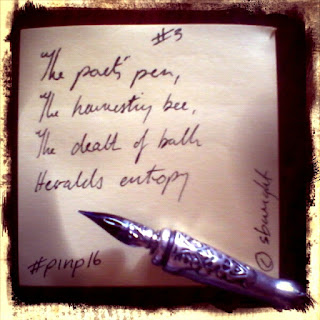 #3
The poet's pen,
The harvesting bee,
The death of both
Heralds entropy
#pinp16
@sbwright